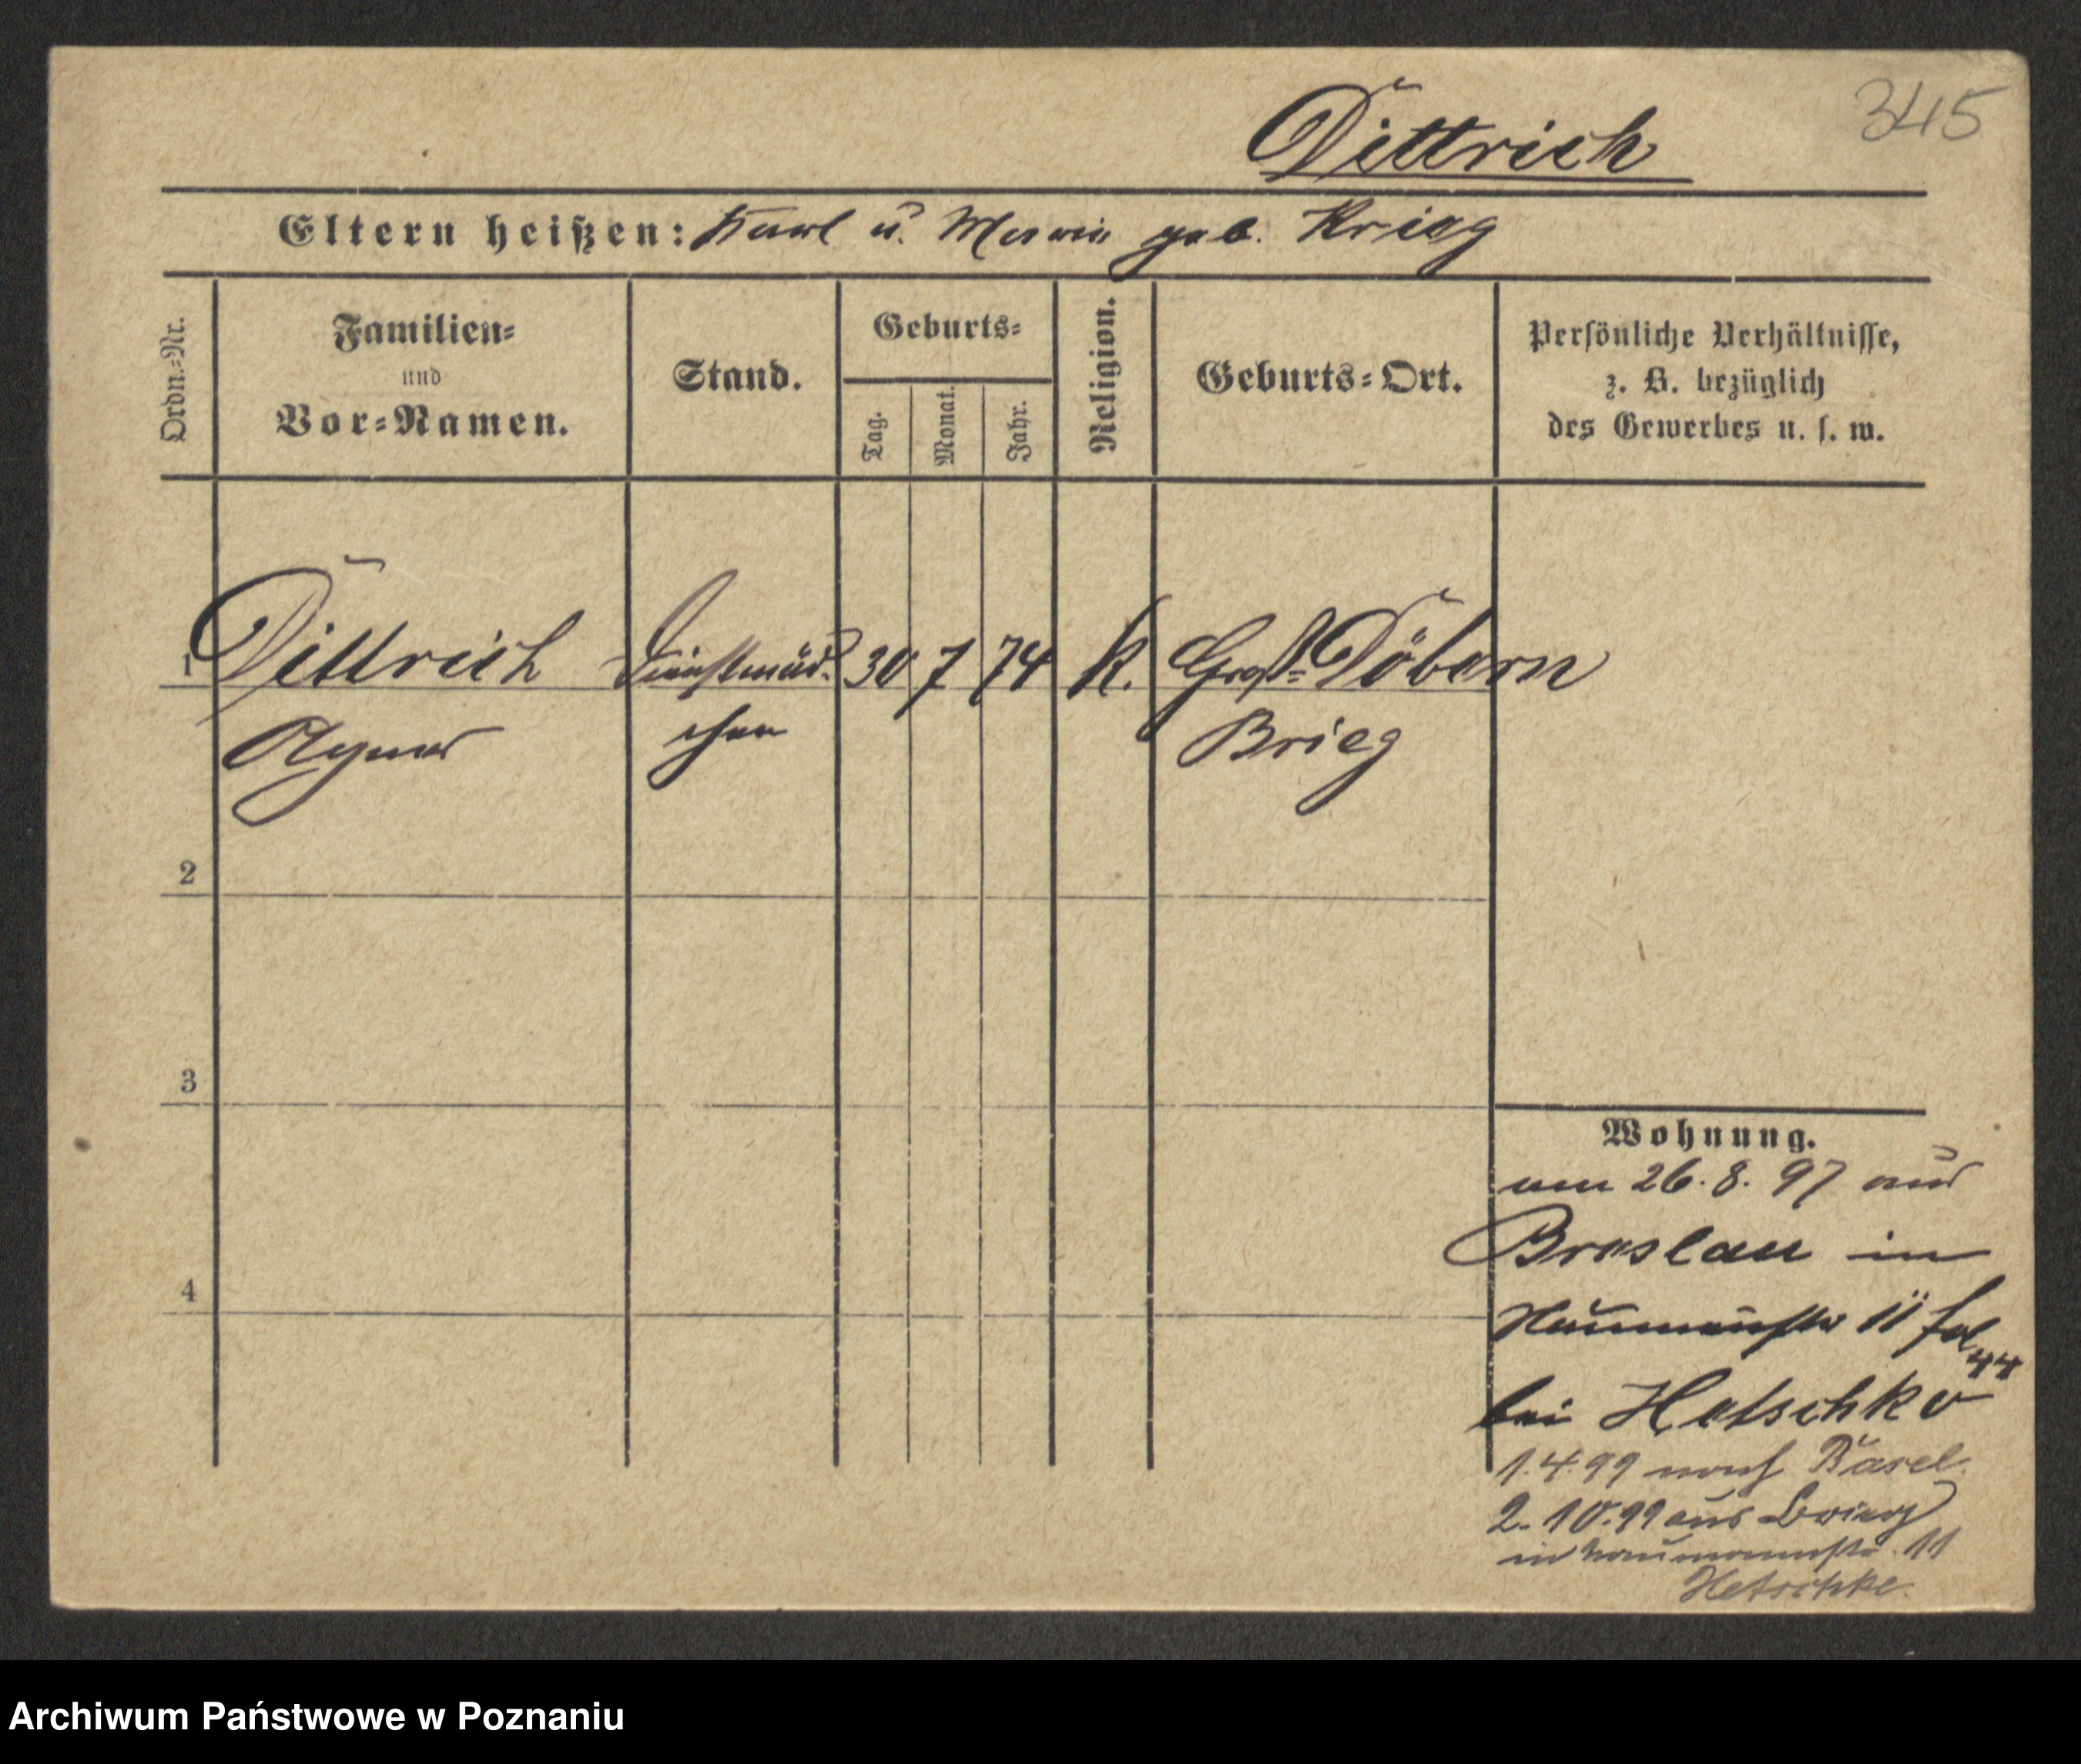 345
Dittrich
Eltern heißen: Karl u. Maria geb. Krieg
Ordn.=Nr.
Familien=
und
Vor=Namen.
Stand.
Geburts=
Tag.
Monat.
Jahr.
Religion.
Geburts=Ort.
Persönliche Verhältnisse,
z. B. bezüglich
des Gewerbes u. s. w.
1 Dittrich Dienstmäd= 30 7 74 k. Groß=Döbern
Agnes chen Brieg
2
3
4
Wohnung.
am 26.8.97 aus
Breslau in
Naumannstr 11
bei Hetschko
1.4.99 nach Basel.
2.10.99 aus Brieg
in Naumannstr. 11
Hetschke.
Archiwum Państwowe w Poznaniu